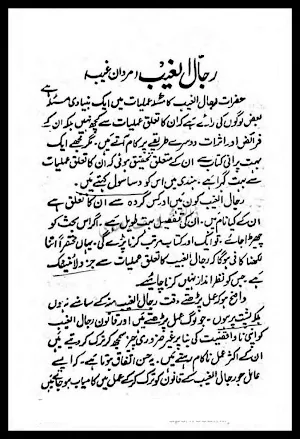 رجال الغیب (مردانِ غیب)
حضرات رجال الغیب کا مسئلہ عملیات میں ایک بنیادی مسئلہ ہے
بعض لوگوں کی رائے ہے کہ ان کا تعلق عملیات سے کچھ نہیں بلکہ ان کے
فرائض اور اثرات دوسرے طریقے پر کام آتے ہیں۔ مگر مجھے ایک
بہت پرانی کتاب سے ان کے متعلق تحقیق ہوئی کہ ان کا تعلق عملیات
سے بہت گہرا ہے۔ ہندی میں اس کو دساسول کہتے ہیں۔
رجال الغیب کون ہیں اور کس گردہ سے ان کا تعلق ہے
ان کے کیا نام ہیں۔ ان کی تفصیل بہت طویل ہے۔ اگر اس بحث کو
چھیڑا جائے، تو ایک اور کتاب مرتب کرنا پڑے گی۔ یہاں مختصراً اتنا
لکھنا کافی ہوگا کہ رجال الغیب کا تعلق عملیات سے جزو لاینفک
ہے۔ جس کو نظر انداز نہیں کرنا چاہیے
واضح ہو کہ عمل پڑھتے وقت رجال الغیب منہ کے سامنے نہ ہوں
بلکہ پشت پر ہوں۔ جو لوگ عمل پڑھتے ہیں اور قانون رجال الغیب
کو اپنی ناواقفیت کی بنا پر غیر ضروری چیز سمجھ کر ترک کر دیتے ہیں
ان کے اکثر عمل ناکام رہتے ہیں۔ یہ حسن اتفاق ہوتا ہے۔ کہ ایسے
عامل جو رجال الغیب کے قانون کو ترک کر کے عمل میں کامیاب ہو جاتے ہیں